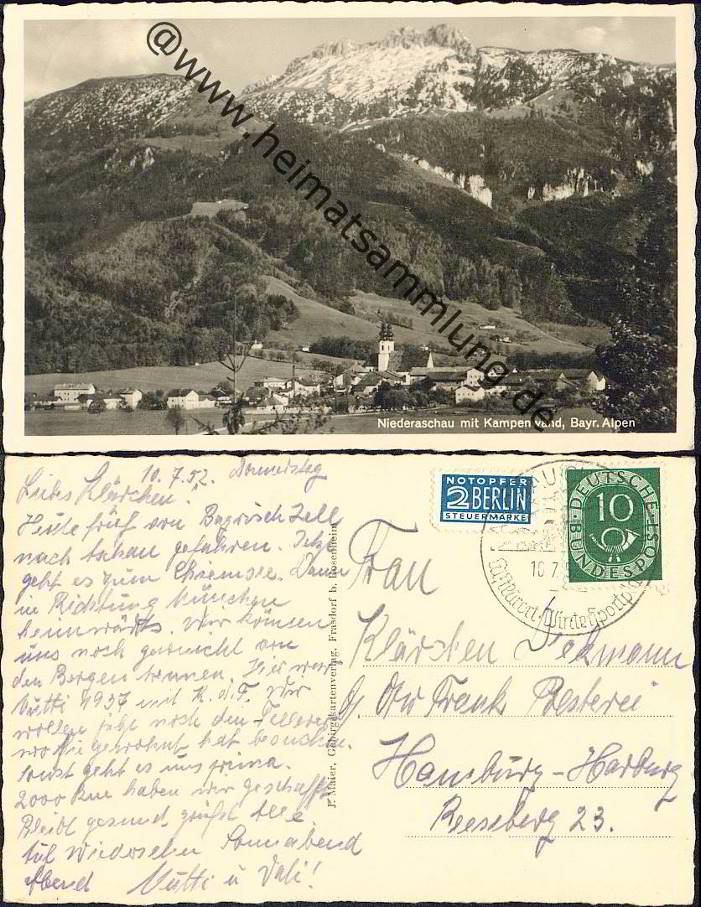 @www.heimatsammlung.de
Niederaschau mit Kampenwand, Bayr. Alpen
10.7.52. Donnerstag
Liebes Klärchen!
Heute früh von Bayrisch Zell
nach Aschau gefahren. Jetzt
geht es zum Chiemsee. Dann
in Richtung München
heimwärts. Wir können
uns noch garnicht von
den Bergen trennen. Hier war
Mutti 1937 mit K.d.F. Wir
wollen jetzt noch den
wo sie gewohnt hat besuchen.
Sonst geht es uns prima.
2000 km haben wir geschafft
Bleibt gesund, grüßt alle
Auf Wiedersehn Sonnabend
Abend Mutti u Vati!
J. Maier, Gebirgskartenverlag, Frasdorf b. Rosenheim
NOTOPFER
2 BERLIN
STEUERMARKE
DEUTSCHE
10
BUNDESPOST
10.7.
Luftkurort
Frau
Klärchen
Hamburg-Harburg
Reeseberg 23.